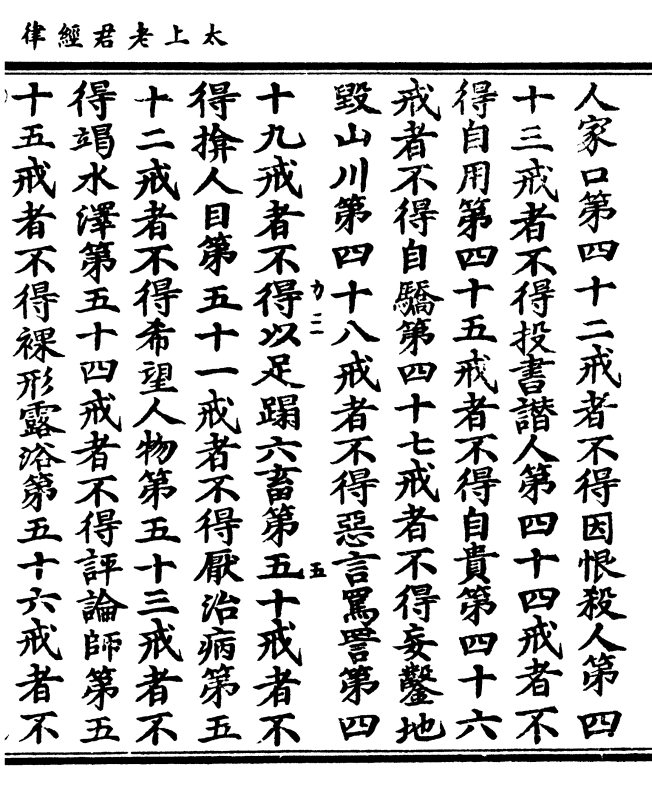 太上老君經律
人家口第四十二戒者不得因恨殺人第四
十三戒者不得投書譛人第四十四戒者不
得自用第四十五戒者不得自貴第四十六
戒者不得自驕第四十七戒者不得妄鑿地
毀山川第四十八戒者不得惡言罵詈第四
力 五
十九戒者不得以足蹋六畜第五十戒者不
得揜人目第五十一戒者不得厭治病第五
十二戒者不得希望人物第五十三戒者不
得竭水澤第五十四戒者不得評論師第五
十五戒者不得裸形露浴第五十六戒者不